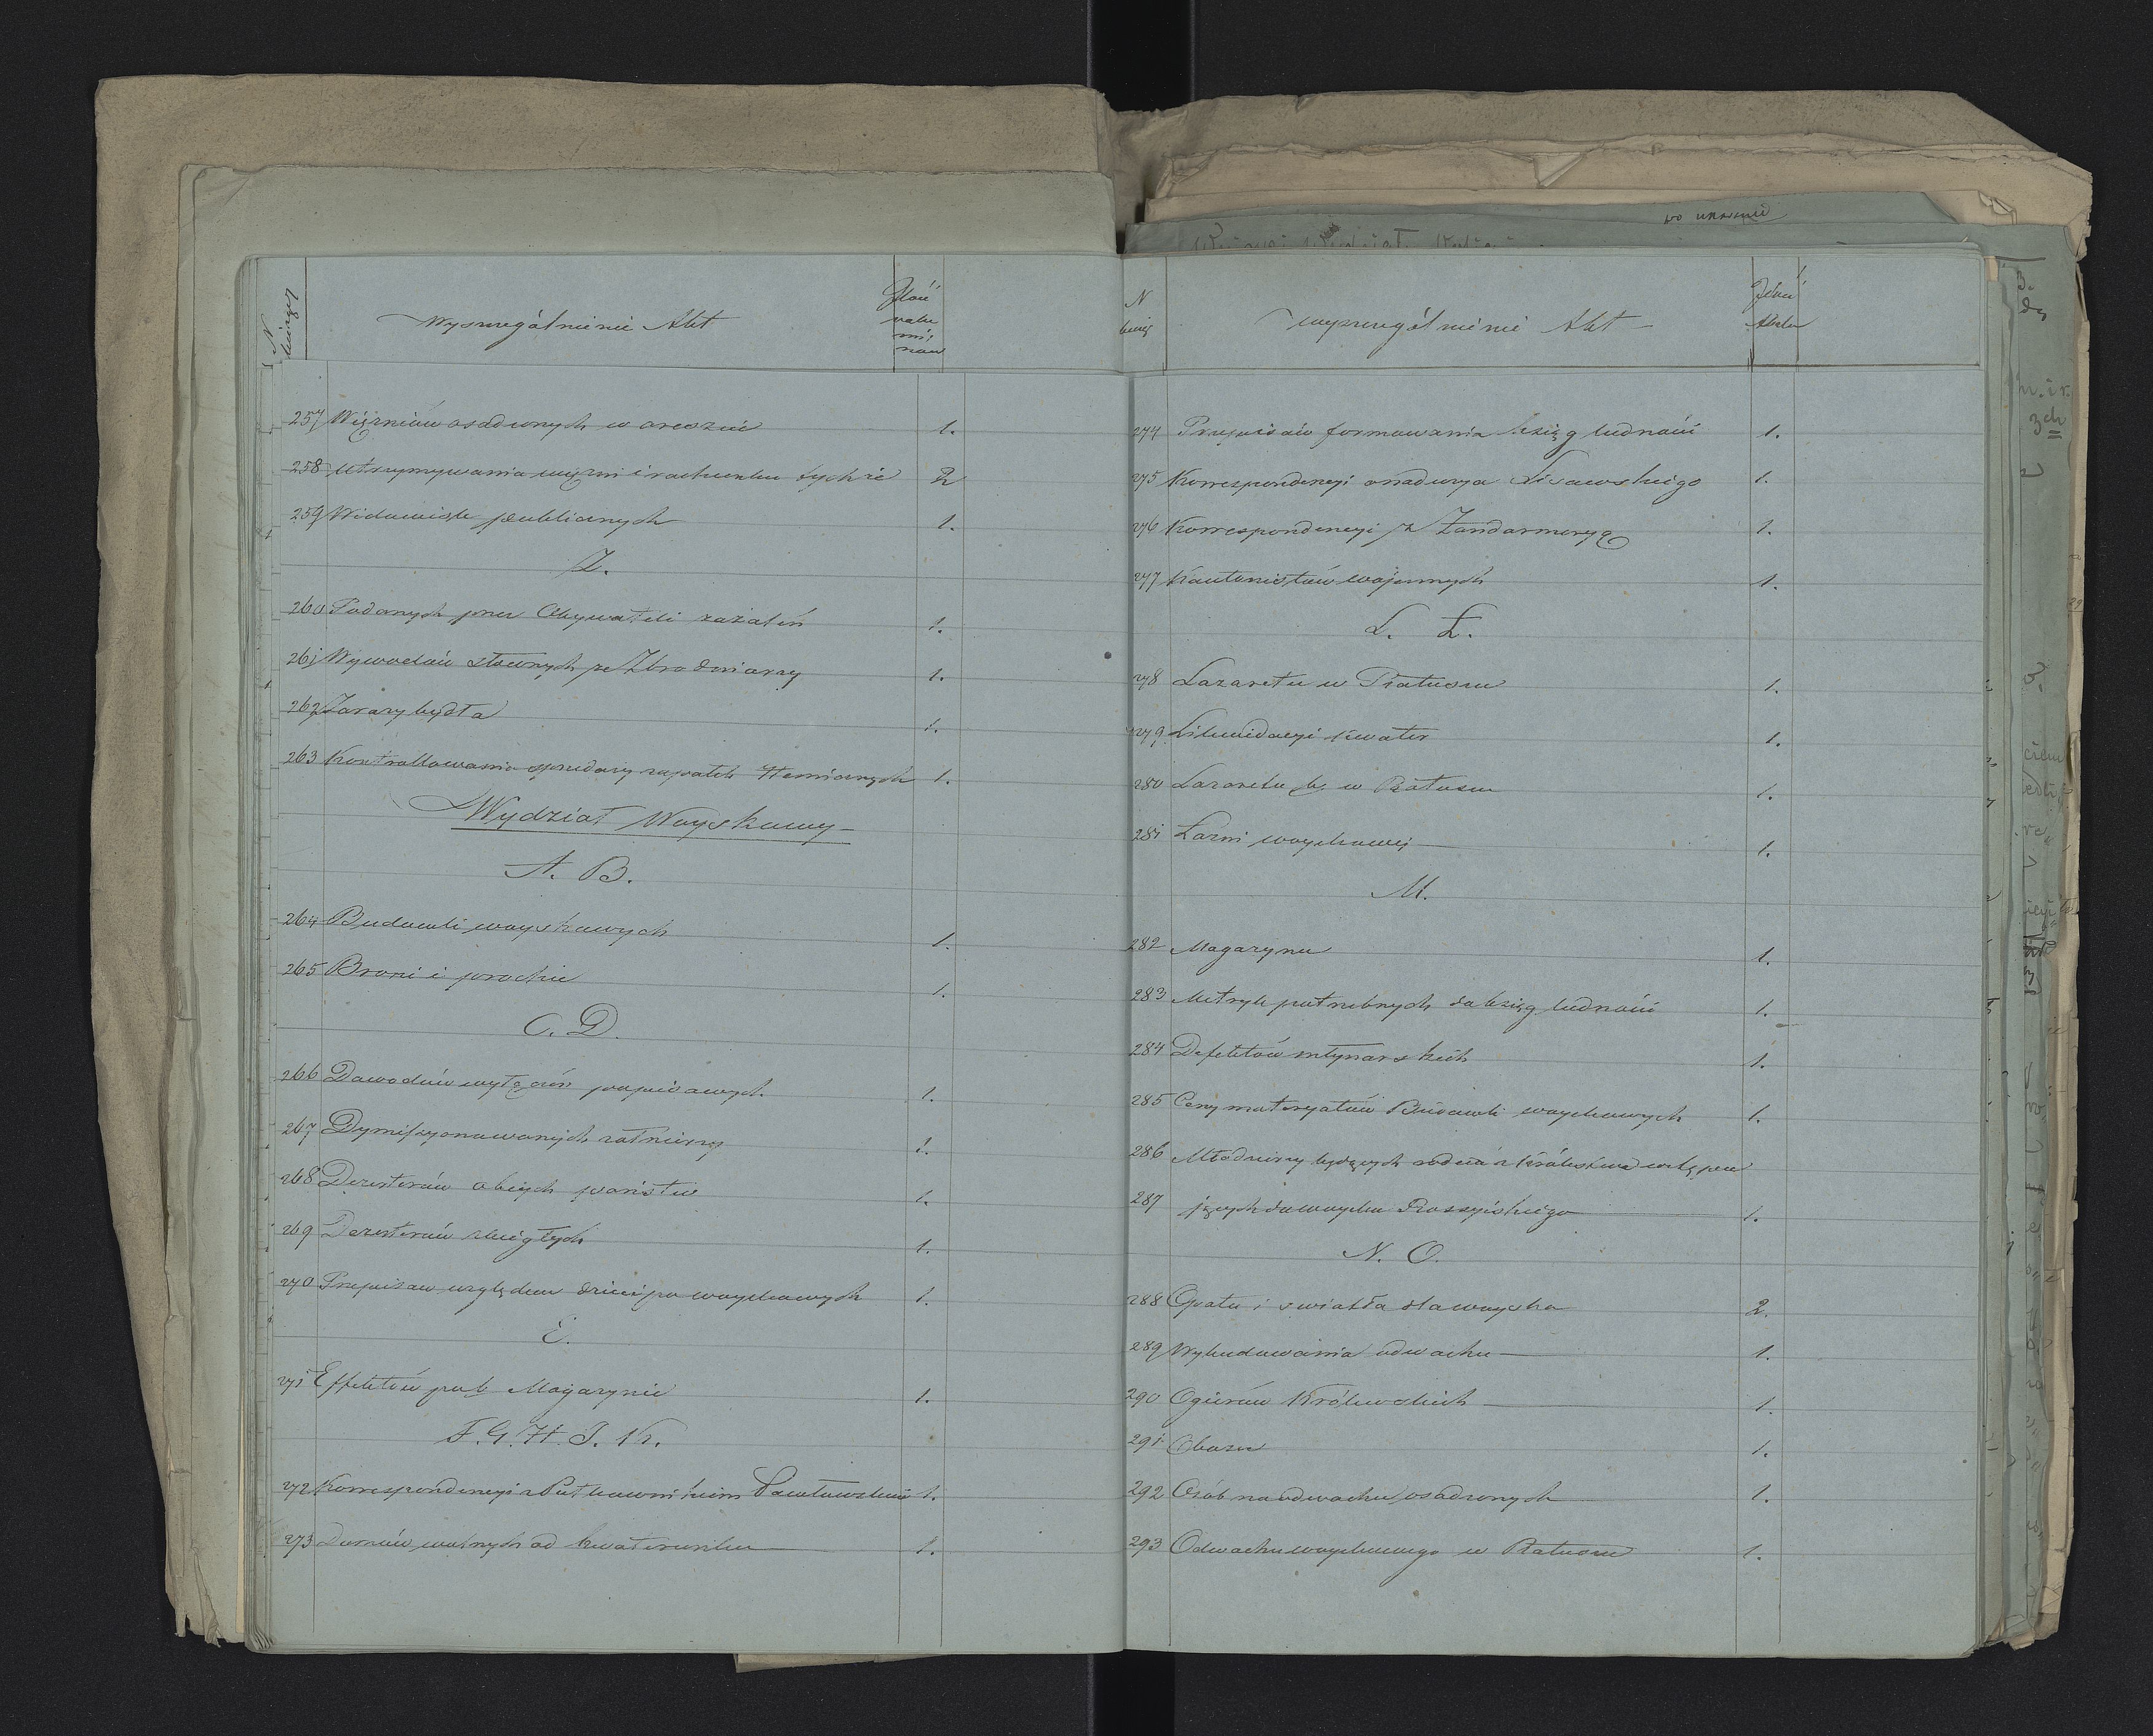 N bieżący Wyszczególnienie Akt Ilość voluminów
257 Więźniów osadzonych w areszcie 1.
258 Utrzymywania więzni i rachunku tychże 2
259 Widowisk publicznych 1.
Z.
260 Podanych przez Obywateli zażaleń 1.
261 Wywodów słownych ze Zbrodniarzy 1.
262 Zarazy bydła 1.
263 Kontrollowania sprzedaży zapałek Hemicznych 1.
Wydział Woyskowy
A. B.
264 Budowli woyskowych 1.
265 Broni i prochu 1.
C. D.
266 Dowodów wyłączeń popisowych 1.
267 Dymissyonowanych żołnierzy 1.
268 Dezerterów obcych państw 1.
269 Dezerterów zbiegłych 1.
270 Przepisów względem dzieci po woyskowych 1.
E.
271 Effektów po b. Magazynie 1.
F. G. H. I. K.
272 Korrespondencyi z Pułkownikiem 1.
273 Domów wolnych od kwaterunku 1.
N bieżą wyszczególnienie Akt Ilość
274 Przepisów formowania ksiąg ludności 1.
275 Korrespondencyi Lisowskiego 1.
276 Korrespondencyi z Żandarmeryą 1.
277 Kantonistów wojennych 1.
L. Ł.
278 Lazaretu w Ratuszu 1.
279 Likwidacyi kwater 1.
280 Lazaretu b. w Ratuszu 1.
281 Łazni woyskowéj 1.
M.
282 Magazynu 1.
283 Metryk potrzebnych do ksiąg ludności 1.
284 Defektów młynarskich 1.
285 Ceny materyałów Budowli woyskowych 1.
286 Młodzieży będących rodem z Królestwa wstępu
287 jących do woyska Rossyiskiego 1.
N. O.
288 Opału i swiatła dla woyska 2.
289 Wybudowania odwachu 1.
290 Ogierów Królewskich 1.
291 Obozu 1.
292 Osób na odwachu osadzonych 1.
293 Odwachu woyskowego w Ratuszu 1.